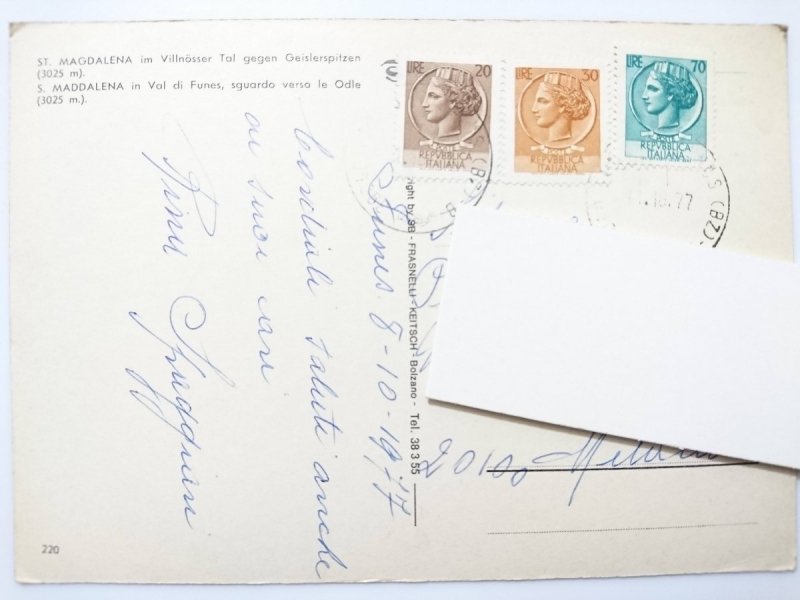 ST. MAGDALENA im Villnösser Tal gegen Geislerspitzen
(3025 m).
S. MADDALENA in Val di Funes, sguardo verso le Odle
(3025 m.).
LIRE 20
POSTE
REPVBBLICA
ITALIANA
LIRE 30
POSTE
REPVBBLICA
ITALIANA
LIRE 70
POSTE
REPVBBLICA
ITALIANA
(BZ)
77
Funes 8-10-1977
Cordiali saluti anche
ai suoi cari
right by SB - FRASNELLI - KEITSCH - Bolzano - Tel. 38 3 55
20100 Milano
220